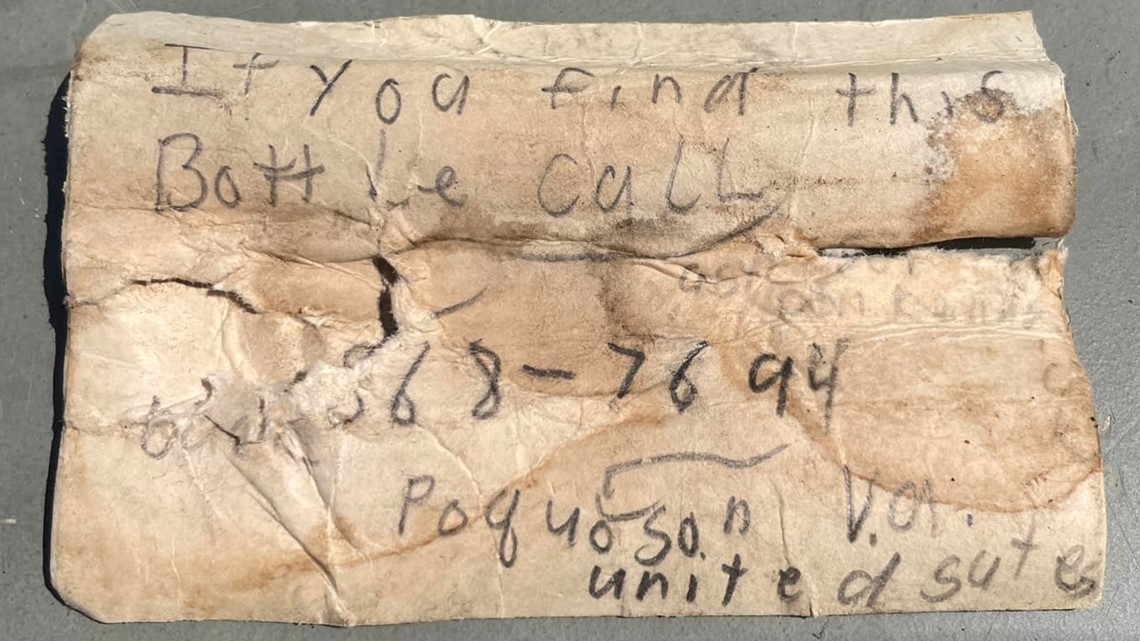 If you find this
Bottle call
868-7694
Poquoson V.a.
united sutes